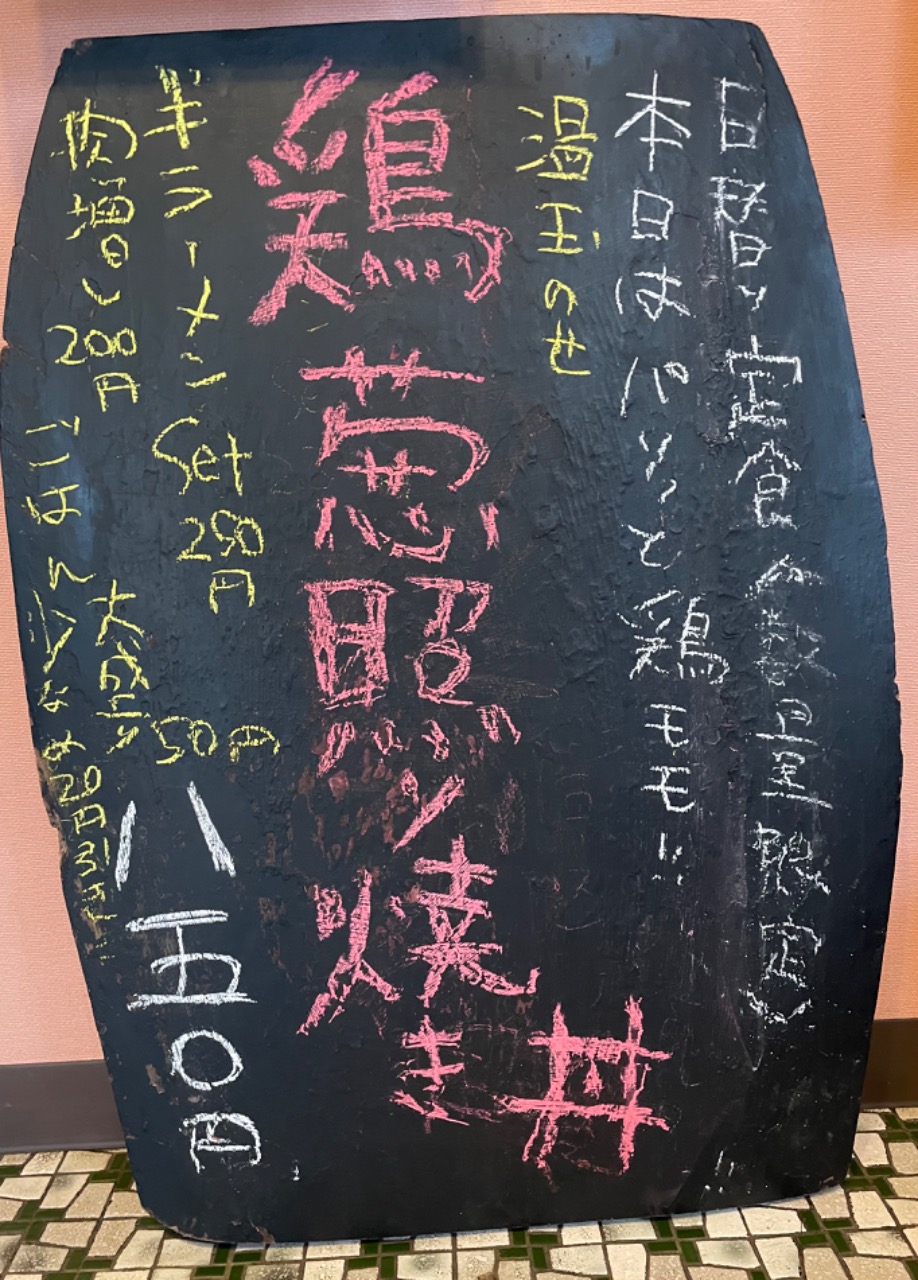 日替り定食〈数量限定〉
本日はパリッと鶏モモ!!
温玉のせ
鶏葱照り焼き丼
半ラーメンSet 250円
肉増し200円
大盛り50円
ごはん少なめ20円引き
八五〇円